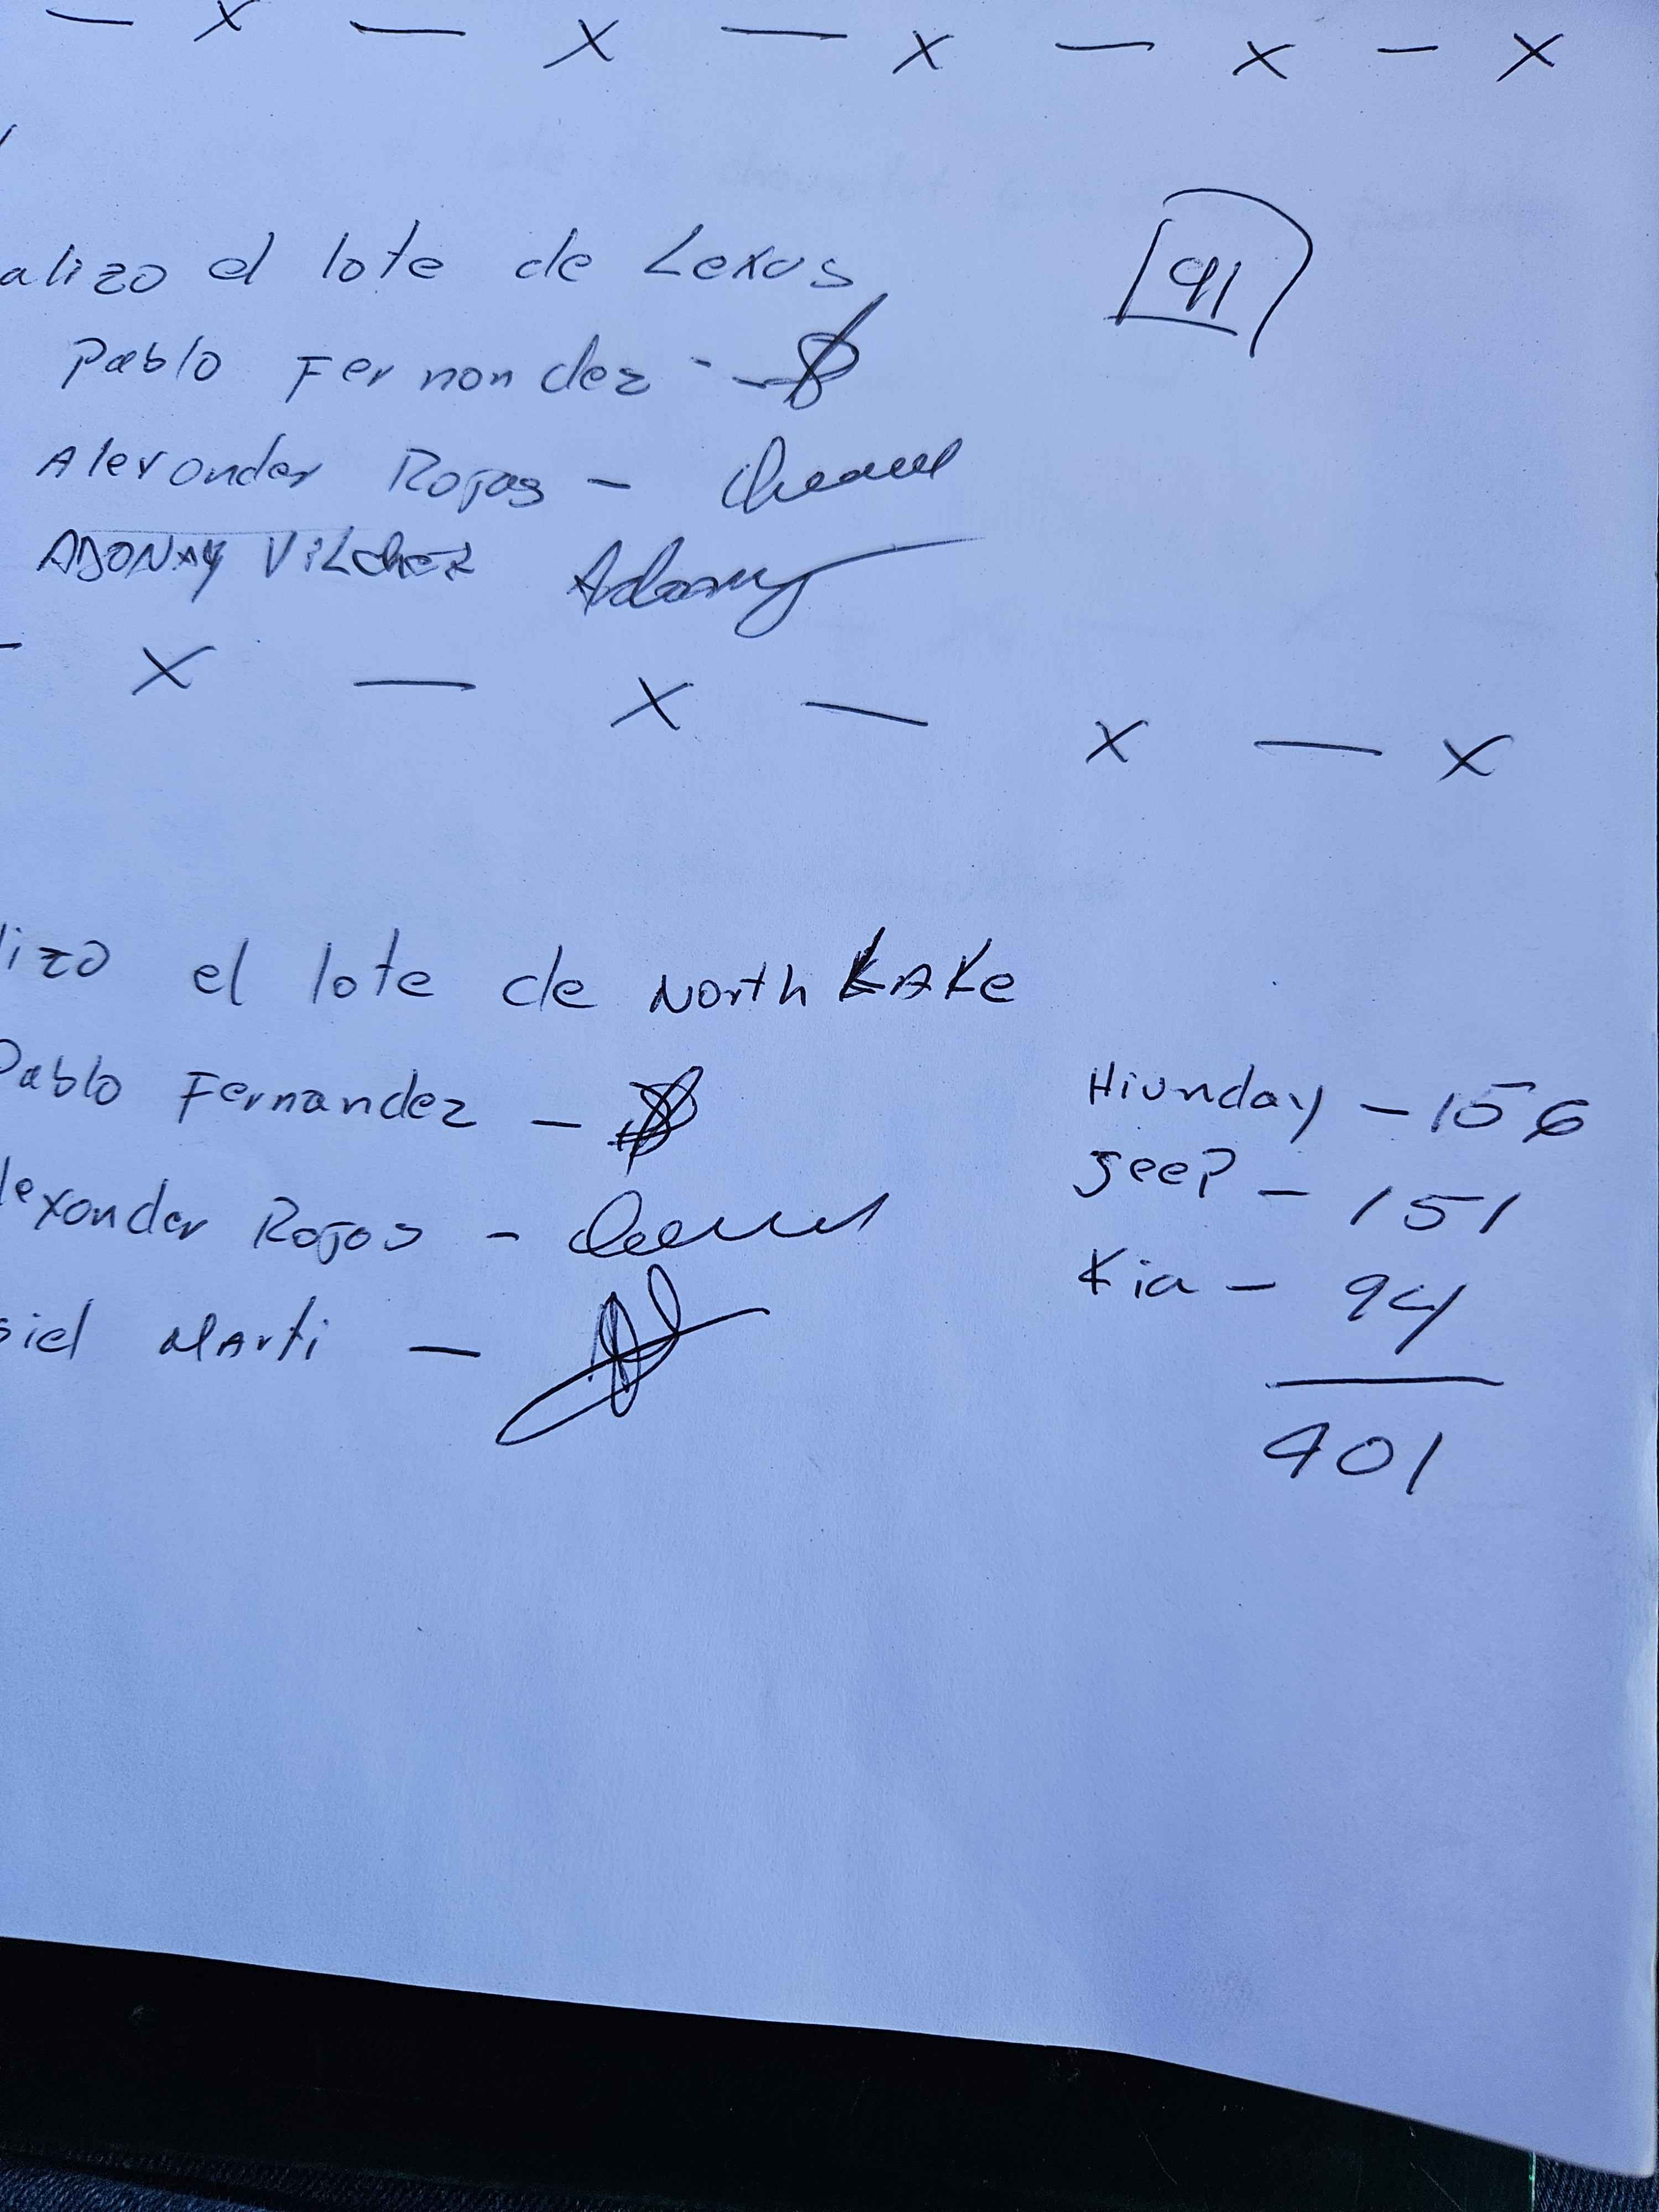 — x — x — x — x — x
alizo el lote de Lexus
91
Pablo Fernandez -
Alexander Rojas -
ADONAY VILchez Adonay
- x — x — x — x
lizo el lote de North LAKe
Pablo Fernandez -
Hiunday - 156
lexander Rojas -
Jeep - 151
Kia - 94
siel MArti -
401